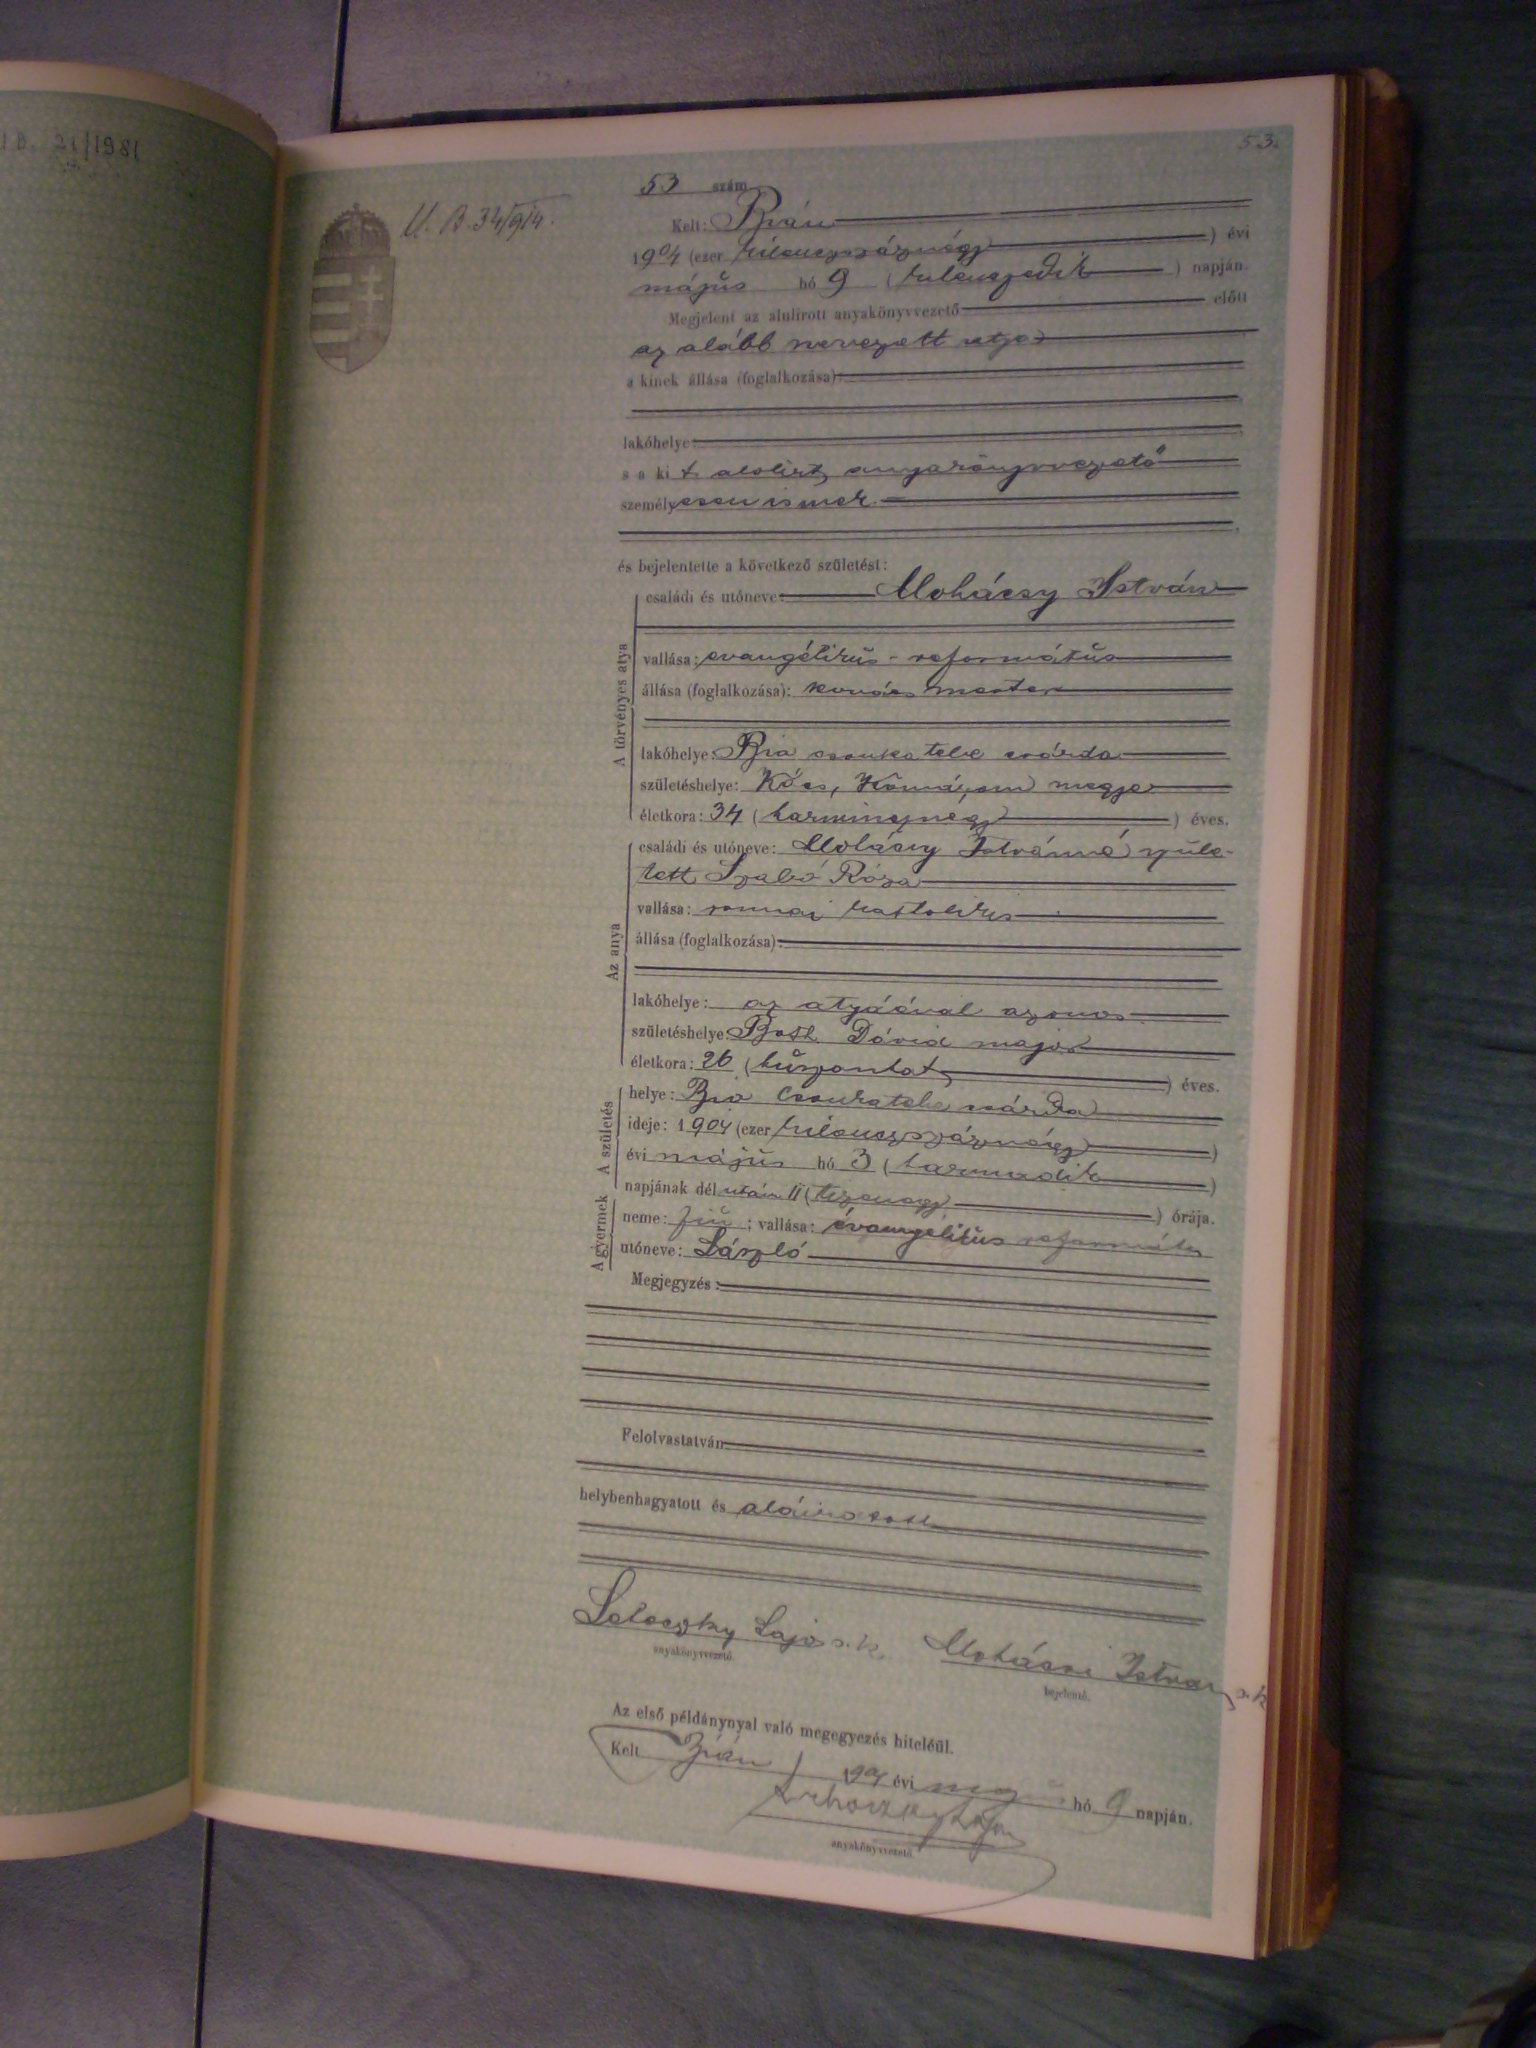 21/1981
53.
U. B. 34/914.
53 szám
Kelt: Bián
1904 (ezer kilenczszáznégy) évi
május hó 9 (kilenczedik) napján.
Megjelent az alulirott anyakönyvvezető előtt
az alább nevezett atya
a kinek állása (foglalkozása):
lakóhelye:
s a ki t alolirt anyakönyvvezető
személyesen ismer.
és bejelentette a következő születést:
A törvényes atya
családi és utóneve: Mohácsy István
vallása: evangélikus-református
állása (foglalkozása): kovács mester
lakóhelye: Bia csárda
születéshelye: Kócs, Komárom megye
életkora: 34 (harmincznégy) éves.
Az anya
családi és utóneve: Mohácsy Istvánné szüle-
tett Szabó Róza
vallása: római katholikus
állása (foglalkozása):
lakóhelye: az atyáéval azonos
születéshelye: Dávid major
életkora: 26 (huszonhat) éves.
A születés
helye: Bia csárda
ideje: 1904 (ezer kilenczszáznégy)
évi május hó 3 (harmadik)
napjának dél után 11 (tizenegy) órája.
A gyermek
neme: fiú; vallása: évangelikus református
utóneve: László
Megjegyzés:
Felolvastatván
helybenhagyatott és aláiratott
Lajos s. k. Mohácsi István s. k.
anyakönyvvezető. bejelentő.
Az első példánynyal való megegyezés hiteléül.
Kelt Bián, 1904 évi hó 9 napján.
anyakönyvvezető.